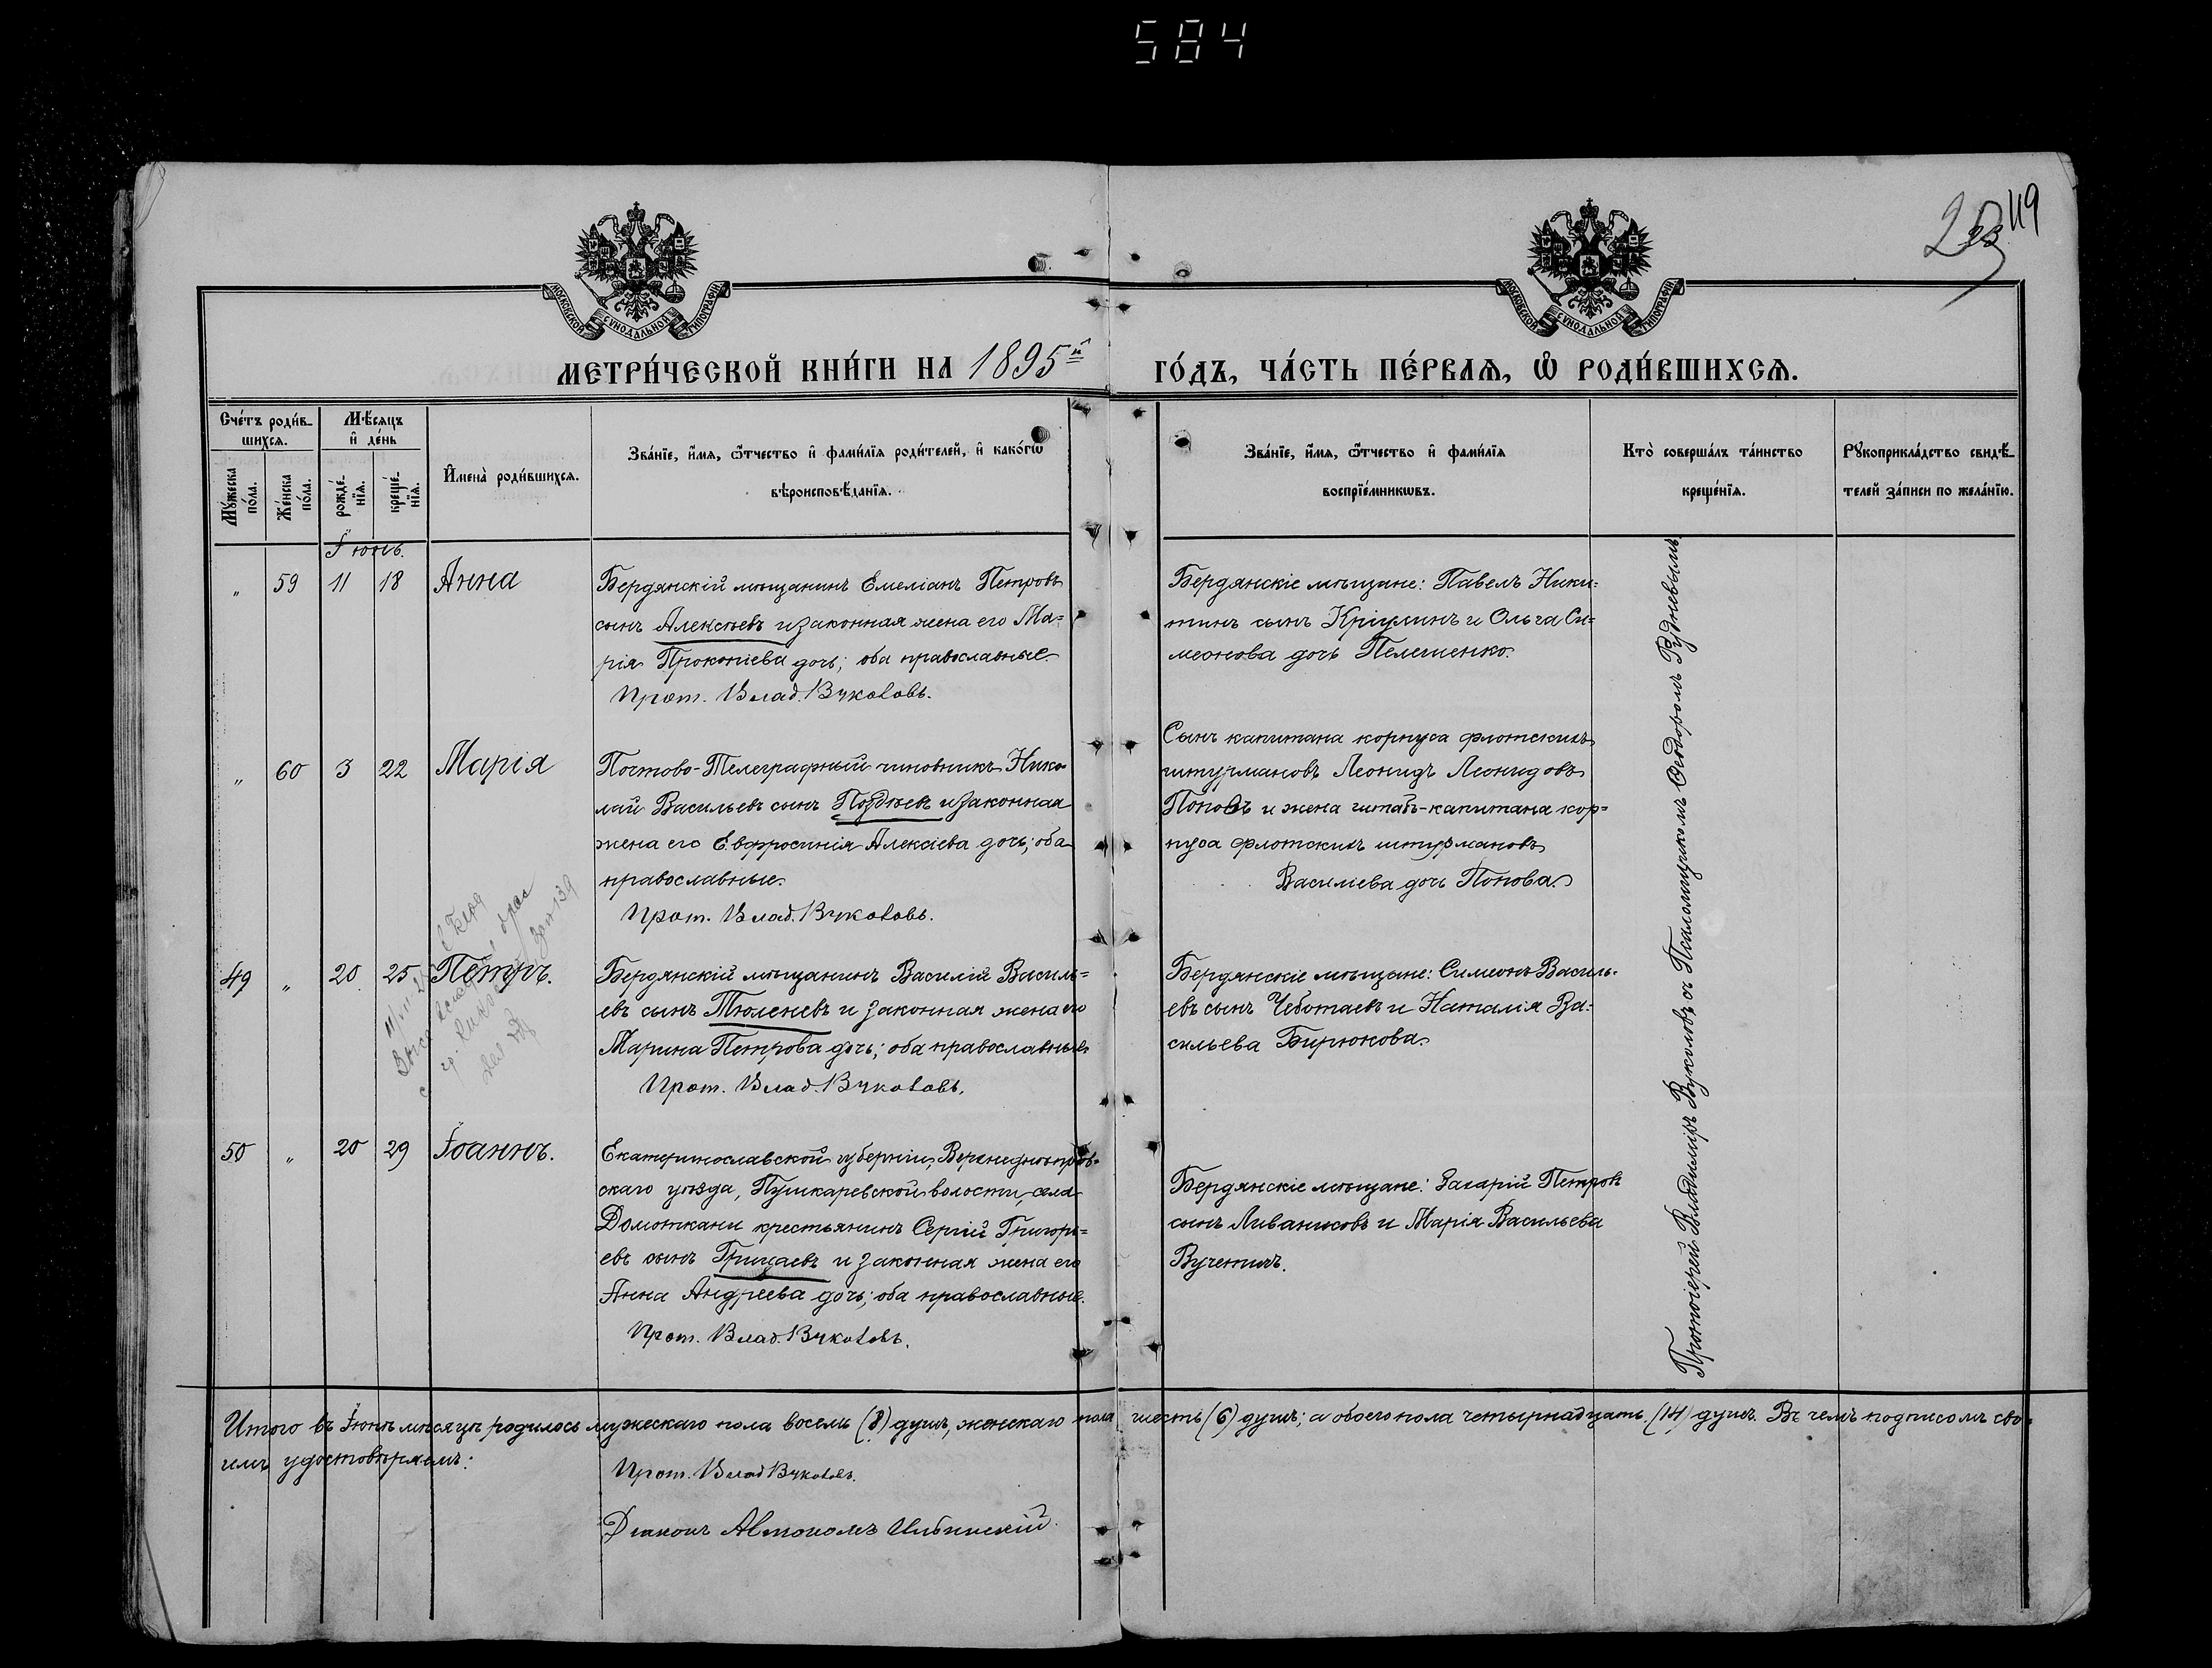 584
119
МОСКОВСКОЙ СѴНОДАЛЬНОЙ ТИПОГРАФІИ
МОСКОВСКОЙ СѴНОДАЛЬНОЙ ТИПОГРАФІИ
МЕТРИ́ЧЕСКОЙ КНИ́ГИ НА 1895й ГО́ДЪ, ЧА́СТЬ ПЕ́РВАѦ, Ѽ РОДИ́ВШИХСѦ.
Сче́тъ роди́в-
шихсѧ.
Мѣ́сѧцъ
и҆ де́нь
Мꙋ́жеска по́ла.
Же́нска по́ла.
рожде́-
нїѧ.
креще́-
нїѧ.
И҆мена̀ роди́вшихсѧ.
Зва́нїе, и҆́мѧ, ѻ҆́тчество и҆ фами́лїѧ роди́телей, и҆ како́гѡ
вѣроисповѣ́данїѧ.
Зва́нїе, и҆́мѧ, ѻ҆́тчество и҆ фами́лїѧ
воспрїе́мникѡвъ.
Кто̀ соверша́лъ та́инство
креще́нїѧ.
Рꙋкоприкла́дство свидѣ́-
телей за́писи по жела́нїю.
Іюнь.
„ 59 11 18 Анна
Бердянскій мѣщанинъ Емеліанъ Петровъ
сынъ Алексѣевъ и законная жена его Ма=
рія Прокопіева дочь; оба православные.
Прот. Влад. Вуколовъ.
Бердянскіе мѣщане: Павелъ Ники=
тинъ сынъ Кріулинъ и Ольга Си=
меонова дочь Пелешенко.
„ 60 3 22 Марія
Почтово-Телеграфный чиновникъ Нико
лай Васильевъ сынъ Позднѣевъ и законная
жена его Евфросинія Алексіева дочь; оба
православные.
Прот. Влад. Вуколовъ.
Сынъ капитана корпуса флотскихъ
штурмановъ Леонидъ Леонидовъ
Поповъ и жена штабъ-капитана кор=
пуса флотскихъ штурмановъ
Василіева дочь Попова.
49 „ 20 25 Петръ.
Бердянскій мѣщанинъ Василій Василь=
евъ сынъ Тюленевъ и законная жена его
Марина Петрова дочь; оба православные
Прот. Влад. Вуколовъ.
Бердянскіе мѣщане: Симеонъ Василь=
евъ сынъ Чеботаевъ и Наталія Ва=
сильева Бирюкова.
50 „ 20 29 Іоаннъ.
Екатеринославской губерніи, Верхнеднѣпров=
скаго уѣзда, Пушкаревской волости, села
Домоткани крестьянинъ Сергій Григорь=
евъ сынъ Грицаевъ и законная жена его
Анна Андреева дочь; оба православные.
Прот. Влад. Вуколовъ.
Бердянскіе мѣщане: Захарій Петровъ
сынъ Ливанисовъ и Марія Васильева
Вучетичъ.
Протоіерей Владиміръ Вуколовъ съ Псаломщикомъ Ѳеодоромъ Рудневымъ
Итого въ Іюнѣ мѣсяцѣ родилось мужескаго пола восемь (8) душъ, женскаго пола шесть (6) душъ; а обоего пола четырнадцать (14) душъ. Въ чемъ подписомъ сво=
имъ удостовѣряемъ:
Прот. Влад Вуколовъ.
Діаконъ Автономъ